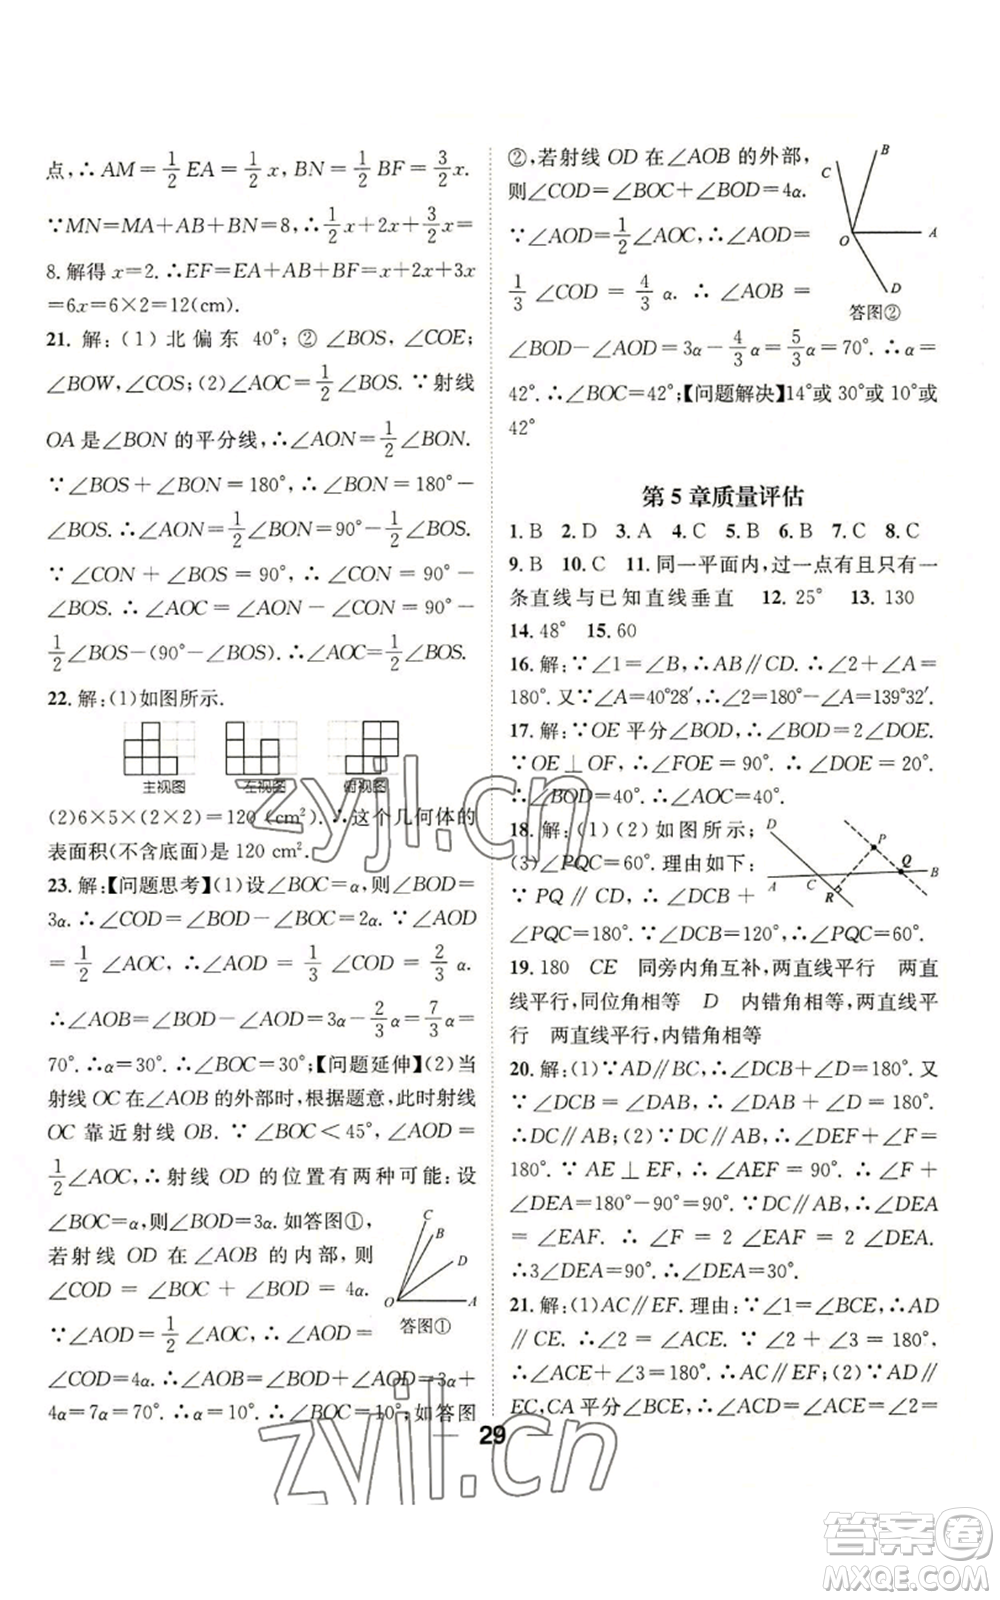 点,∴AM=1/2EA=1/2x,BN=1/2BF=3/2x.
∵MN=MA+AB+BN=8,∴1/2x+2x+3/2x=
8.解得x=2.∴EF=EA+AB+BF=x+2x+3x
=6x=6×2=12(cm).
21. 解:(1)北偏东 40°;② ∠BOS,∠COE;
∠BOW,∠COS;(2)∠AOC=1/2∠BOS.∵射线
OA是∠BON的平分线,∴∠AON=1/2∠BON.
∵∠BOS+∠BON=180°,∴∠BON=180°-
∠BOS.∴∠AON=1/2∠BON=90°-1/2∠BOS.
∵∠CON+∠BOS=90°,∴∠CON=90°-
∠BOS.∴∠AOC=∠AON-∠CON=90°-
1/2∠BOS-(90°-∠BOS).∴∠AOC=1/2∠BOS.
22. 解:(1)如图所示.
主视图 左视图 俯视图
(2)6×5×(2×2)=120(cm²).∴这个几何体的
表面积(不含底面)是120 cm².
23. 解:【问题思考】(1)设∠BOC=α,则∠BOD=
3α.∴∠COD=∠BOD-∠BOC=2α.∵∠AOD
=1/2∠AOC,∴∠AOD=1/3∠COD=2/3α.
∴∠AOB=∠BOD-∠AOD=3α-2/3α=7/3α=
70°.∴α=30°.∴∠BOC=30°;【问题延伸】(2)当
射线OC在∠AOB的外部时,根据题意,此时射线
OC靠近射线OB.∵∠BOC<45°,∠AOD=
1/2∠AOC,∴射线OD的位置有两种可能:设
∠BOC=α,则∠BOD=3α.如答图①,
若射线OD在∠AOB的内部,则
∠COD=∠BOC+∠BOD=4α.
∵∠AOD=1/2∠AOC,∴∠AOD=
∠COD=4α.∴∠AOB=∠BOD+∠AOD=3α+
4α=7α=70°.∴α=10°.∴∠BOC=10°;如答图
C
B
D
O
A
答图①
②,若射线OD在∠AOB的外部,
则∠COD=∠BOC+∠BOD=4α.
∵∠AOD=1/2∠AOC,∴∠AOD=
1/3∠COD=4/3α.∴∠AOB=
∠BOD-∠AOD=3α-4/3α=5/3α=70°.∴α=
42°.∴∠BOC=42°;【问题解决】14°或30°或10°或
42°
C
B
O
A
D
答图②
第5章质量评估
1. B 2. D 3. A 4. C 5. B 6. B 7. C 8. C
9. B 10. C 11. 同一平面内,过一点有且只有一
条直线与已知直线垂直 12. 25° 13. 130
14. 48° 15. 60
16. 解:∵∠1=∠B,∴AB∥CD.∴∠2+∠A=
180°.又∵∠A=40°28′,∴∠2=180°-∠A=139°32′.
17. 解:∵OE平分∠BOD,∴∠BOD=2∠DOE.
∵OE⊥OF,∴∠EOF=90°.∴∠DOE=20°.
∴∠BOD=40°.∴∠AOC=40°.
18. 解:(1)(2)如图所示;
(3)∠PQC=60°.理由如下:
∵PQ∥CD,∴∠DCB+
∠PQC=180°.∵∠DCB=120°,∴∠PQC=60°.
D
P
Q
A
C
R
B
19. 180 CE 同旁内角互补,两直线平行 两直
线平行,同位角相等 D 内错角相等,两直线平
行 两直线平行,内错角相等
20. 解:(1)∵AD∥BC,∴∠DCB+∠D=180°.又
∵∠DCB=∠DAB,∴∠DAB+∠D=180°.
∴DC∥AB;(2)∵DC∥AB,∴∠DEF+∠F=
180°.∵AE⊥EF,∴∠AEF=90°.∴∠F+
∠DEA=180°-90°=90°.∵DC∥AB,∴∠DEA
=∠EAF.∴∠F=2∠EAF=2∠DEA.
∴3∠DEA=90°.∴∠DEA=30°.
21. 解:(1)AC∥EF.理由:∵∠1=∠BCE,∴AD
∥CE.∴∠2=∠ACE.∵∠2+∠3=180°,
∴∠ACE+∠3=180°.∴AC∥EF;(2)∵AD∥
EC,CA平分∠BCE,∴∠ACD=∠ACE=∠2=
29
zyjl.cn
zyjl.cn
答案圈
MXQE.COM